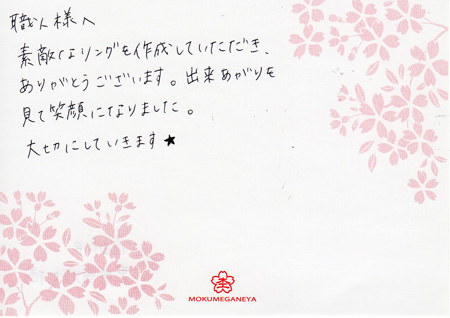 職人様へ
素敵なリングを作成していただき、
ありがとうございます。出来あがりを
見て笑顔になりました。
大切にしていきます★
MOKUMEGANEYA